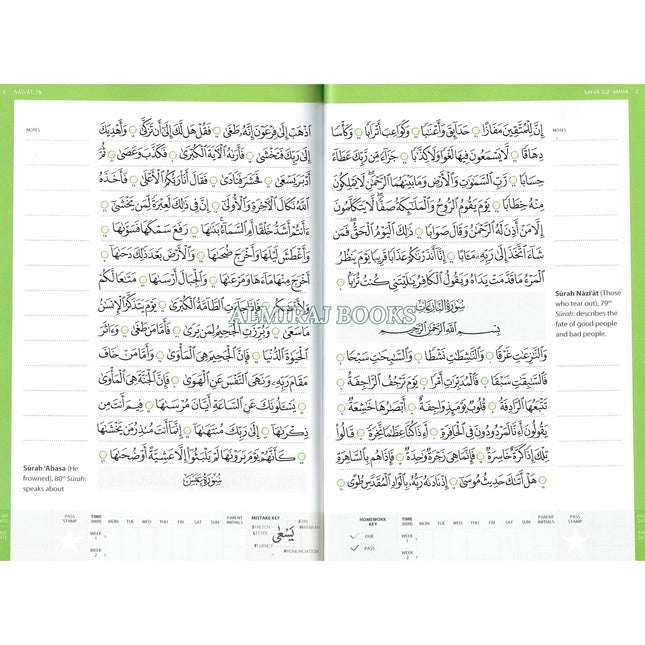 SAFAR JUZ' AMMA 2
NOTES
إِنَّ لِلْمُتَّقِينَ مَفَازًا حَدَآئِقَ وَأَعْنَٰبًا وَكَوَاعِبَ أَتْرَابًا وَكَأْسًا
دِهَاقًا لَّا يَسْمَعُونَ فِيهَا لَغْوًا وَلَا كِذَّٰبًا جَزَآءً مِّن رَّبِّكَ عَطَآءً
حِسَابًا رَّبِّ ٱلسَّمَٰوَٰتِ وَٱلْأَرْضِ وَمَا بَيْنَهُمَا ٱلرَّحْمَٰنِ لَا يَمْلِكُونَ
مِنْهُ خِطَابًا يَوْمَ يَقُومُ ٱلرُّوحُ وَٱلْمَلَٰٓئِكَةُ صَفًّا لَّا يَتَكَلَّمُونَ
إِلَّا مَنْ أَذِنَ لَهُ ٱلرَّحْمَٰنُ وَقَالَ صَوَابًا ذَٰلِكَ ٱلْيَوْمُ ٱلْحَقُّ فَمَن
شَآءَ ٱتَّخَذَ إِلَىٰ رَبِّهِۦ مَـَٔابًا إِنَّآ أَنذَرْنَٰكُمْ عَذَابًا قَرِيبًا يَوْمَ يَنظُرُ
ٱلْمَرْءُ مَا قَدَّمَتْ يَدَاهُ وَيَقُولُ ٱلْكَافِرُ يَٰلَيْتَنِى كُنتُ تُرَٰبًا
سُورَةُ النَّازِعَاتِ
بِسْمِ ٱللَّهِ ٱلرَّحْمَٰنِ ٱلرَّحِيمِ
وَٱلنَّٰزِعَٰتِ غَرْقًا وَٱلنَّٰشِطَٰتِ نَشْطًا وَٱلسَّٰبِحَٰتِ سَبْحًا
فَٱلسَّٰبِقَٰتِ سَبْقًا فَٱلْمُدَبِّرَٰتِ أَمْرًا يَوْمَ تَرْجُفُ ٱلرَّاجِفَةُ
تَتْبَعُهَا ٱلرَّادِفَةُ قُلُوبٌ يَوْمَئِذٍ وَاجِفَةٌ أَبْصَٰرُهَا خَٰشِعَةٌ
يَقُولُونَ أَءِنَّا لَمَرْدُودُونَ فِى ٱلْحَافِرَةِ أَءِذَا كُنَّا عِظَٰمًا نَّخِرَةً قَالُوا۟
تِلْكَ إِذًا كَرَّةٌ خَاسِرَةٌ فَإِنَّمَا هِىَ زَجْرَةٌ وَٰحِدَةٌ فَإِذَا هُم بِٱلسَّاهِرَةِ
هَلْ أَتَىٰكَ حَدِيثُ مُوسَىٰٓ إِذْ نَادَىٰهُ رَبُّهُۥ بِٱلْوَادِ ٱلْمُقَدَّسِ طُوًى
Sūrah Nāzi'āt (Those
who tear out), 79th
Sūrah: describes the
fate of good people
and bad people.
HOMEWORK KEY
DUE
PASS
TIME (MIN) MON TUE WED THU FRI SAT SUN PARENT INITIALS PASS STAMP
WEEK 1 ?
WEEK 2 ?
3 NĀZI'ĀT: 79
NOTES
ٱذْهَبْ إِلَىٰ فِرْعَوْنَ إِنَّهُۥ طَغَىٰ فَقُلْ هَل لَّكَ إِلَىٰٓ أَن تَزَكَّىٰ وَأَهْدِيَكَ
إِلَىٰ رَبِّكَ فَتَخْشَىٰ فَأَرَىٰهُ ٱلْءَايَةَ ٱلْكُبْرَىٰ فَكَذَّبَ وَعَصَىٰ ثُمَّ
أَدْبَرَ يَسْعَىٰ فَحَشَرَ فَنَادَىٰ فَقَالَ أَنَا۠ رَبُّكُمُ ٱلْأَعْلَىٰ فَأَخَذَهُ
ٱللَّهُ نَكَالَ ٱلْءَاخِرَةِ وَٱلْأُولَىٰٓ إِنَّ فِى ذَٰلِكَ لَعِبْرَةً لِّمَن يَخْشَىٰٓ
ءَأَنتُمْ أَشَدُّ خَلْقًا أَمِ ٱلسَّمَآءُ بَنَىٰهَا رَفَعَ سَمْكَهَا فَسَوَّىٰهَا
وَأَغْطَشَ لَيْلَهَا وَأَخْرَجَ ضُحَىٰهَا وَٱلْأَرْضَ بَعْدَ ذَٰلِكَ دَحَىٰهَآ
أَخْرَجَ مِنْهَا مَآءَهَا وَمَرْعَىٰهَا وَٱلْجِبَالَ أَرْسَىٰهَا مَتَٰعًا لَّكُمْ
وَلِأَنْعَٰمِكُمْ فَإِذَا جَآءَتِ ٱلطَّآمَّةُ ٱلْكُبْرَىٰ يَوْمَ يَتَذَكَّرُ ٱلْإِنسَٰنُ
مَا سَعَىٰ وَبُرِّزَتِ ٱلْجَحِيمُ لِمَن يَرَىٰ فَأَمَّا مَن طَغَىٰ وَءَاثَرَ
ٱلْحَيَوٰةَ ٱلدُّنْيَا فَإِنَّ ٱلْجَحِيمَ هِىَ ٱلْمَأْوَىٰ وَأَمَّا مَنْ خَافَ
مَقَامَ رَبِّهِۦ وَنَهَى ٱلنَّفْسَ عَنِ ٱلْهَوَىٰ فَإِنَّ ٱلْجَنَّةَ هِىَ ٱلْمَأْوَىٰ
يَسْـَٔلُونَكَ عَنِ ٱلسَّاعَةِ أَيَّانَ مُرْسَىٰهَا فِيمَ أَنتَ مِن
ذِكْرَىٰهَآ إِلَىٰ رَبِّكَ مُنتَهَىٰهَآ إِنَّمَآ أَنتَ مُنذِرُ مَن يَخْشَىٰهَا
كَأَنَّهُمْ يَوْمَ يَرَوْنَهَا لَمْ يَلْبَثُوٓا۟ إِلَّا عَشِيَّةً أَوْ ضُحَىٰهَا
سُورَةُ عَبَسَ
Sūrah 'Abasa (He
frowned), 80th Sūrah:
speaks about
PASS STAMP TIME (MIN) MON TUE WED THU FRI SAT SUN PARENT INITIALS
WEEK 1 ?
WEEK 2 ?
MISTAKE KEY
STRETCH JOIN
LETTER HARAKAH
يَسْعَىٰ
FLUENCY PRONUNCIATION
ALMIRAJ BOOKS